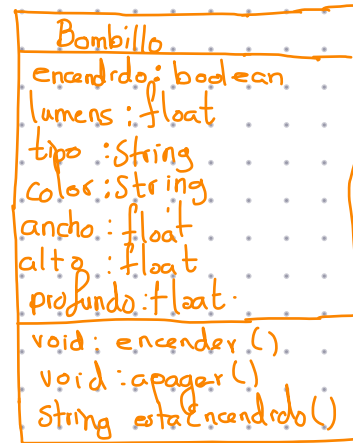 Bombillo
encendido: boolean
lumens: float
tipo: String
color: String
ancho: float
alto: float
profundo: float.
void: encender()
void: apagar()
String estaEncendido()